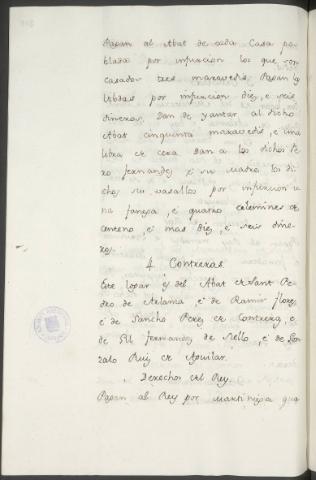 Pagan al Abat de cada Casa po
blada por infurcion los que son
casados tres maravedis. Pagan las
bibdas por infurcion diez, e seis
dineros. Dan de yantar al dicho
Abat cinquenta maravedis, e una
libra de cera dan a los dichos Pe
ro fernandez e su madre los di
chos sus vasallos por infurcion u
na fanega, e quatro celemines de
centeno, e mas diez, e seis dine
ros.
4. Contreras.
Este logar es del Abat de Sant Pe
dro de Arlama, e de Ramir flores
e de Sancho Perez de Contreras, e
de Gil fernandez de Vello, e de Gon
zalo Ruiz de Aguilar.
Derechos del Rey.
Pagan al Rey por martiniega qua